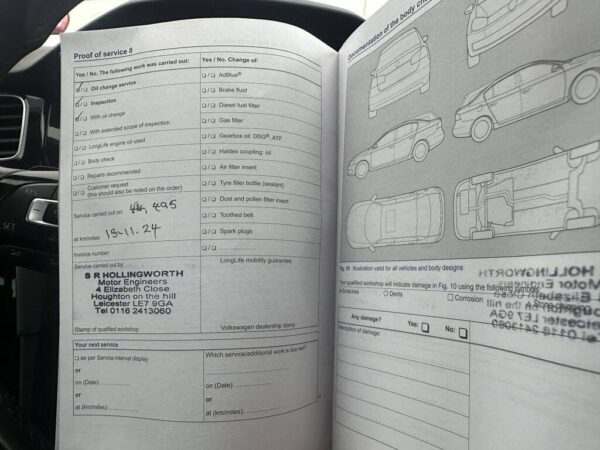 Proof of service 8
Yes / No. The following work was carried out:
Oil change service
Inspection
With oil change
With extended scope of inspection
LongLife engine oil used
Body check
Repairs recommended
Customer request
(this should also be noted on the order)
Service carried out on
495
at km/miles:
13-11.24
Invoice number:
Service carried out by:
S R HOLLINGWORTH
Motor Engineers
4 Elizabeth Close
Houghton on the hill
Leicester LE7 9GA
Tel 0116 2413060
Stamp of qualified workshop
Yes / No. Change of:
AdBlue®
Brake fluid
Diesel fuel filter
Gas filter
Gearbox oil: DSG®, ATF
Haldex coupling: oil
Air filter insert
Tyre filler bottle (sealant)
Dust and pollen filter insert
Toothed belt
Spark plugs
LongLife mobility guarantee
Volkswagen dealership stamp
Your next service
as per Service interval display
or
on (Date):
or
at (km/miles):
Which service/additional work is due next?
on (Date):
or
at (km/miles):
Documentation of the body
Fig. 10 Illustration valid for all vehicles and body designs
Your qualified workshop will indicate damage in Fig. 10 using the following symbols:
Scratches
Dents
Corrosion
Any damage?
Yes:
No:
Description of damage:
SET